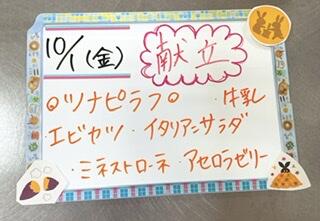 10/1(金) 献立
○ツナピラフ○ ・牛乳
・エビカツ・イタリアンサラダ
・ミネストローネ・アセロラゼリー